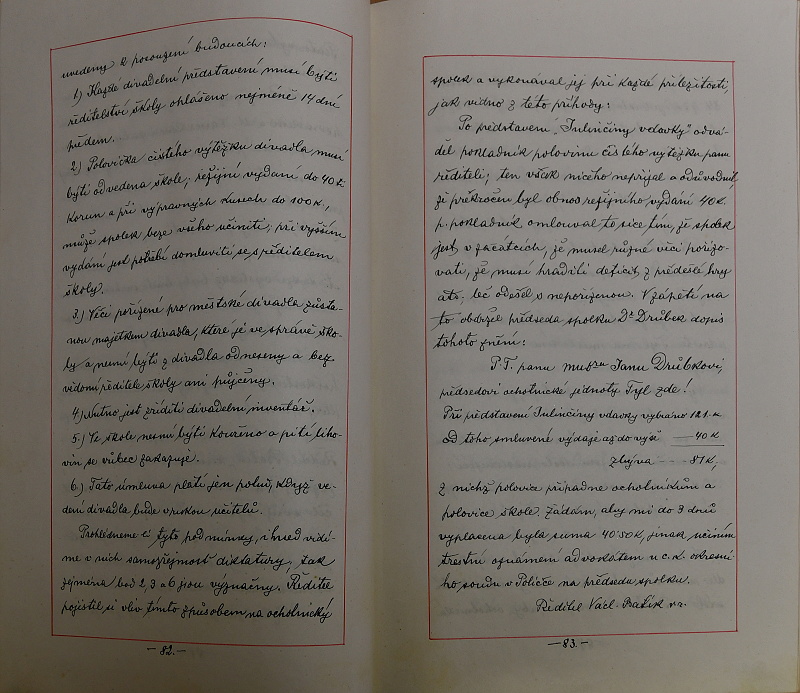 uvedeny k posouzení budoucích:
1) Každé divadelní představení musí býti
ředitelství školy ohlášeno nejméně 14 dní
předem.
2) Polovička čistého výtěžku divadla, musí
býti odvedena škole; režijní vydání do 40ti
korun a při výpravných kusech do 100 K.,
může spolek beze všeho učiniti; při vyšším
vydání jest potřebí domluviti se s ředitelem
školy.
3.) Věci pořízené pro městské divadlo zůsta-
nou majetkem divadla, které je ve správě ško-
ly a nesmí býti z divadla odneseny a bez
vědomí ředitele školy ani půjčeny.
4) Nutno jest zříditi divadelní inventář.
5.) Ve škole nesmí býti kouřeno a pití liho-
vin se vůbec zakazuje.
6.) Tato úmluva platí jen potud, když ve-
dení divadla bude v rukou učitelů.
Prohlédneme-li tyto podmínky, ihned vidí-
me v nich samozřejmost diktatury, tak
zejména bod 2, 3 a 6 jsou význačny. Ředitel
pojistil si vliv tímto způsobem na ochotnický
— 82. —
spolek a vykonával jej při každé příležitosti,
jak vidno z této příhody:
Po představení „Inlinčiny vdavky“ odvá-
děl pokladník polovinu čistého výtěžku panu
řediteli; ten však ničeho nepřijal a odůvodnil,
že překročen byl obnos režijního vydání 40 K.
p. pokladník omlouval to sice tím, že spolek
jest v začátcích, že musel různé věci pořizo-
vati, že musí hraditi deficit z předešlé hry
atd. leč odešel s nepořízenou. V zápětí na
to obdržel předseda spolku Dr Drübek dopis
tohoto znění:
P. T. panu MUDru Janu Drübkovi,
předsedovi ochotnické jednoty Tyl zde!
Při představení Inlinčiny vdavky vybráno 121 K
od toho smluvené výdaje až do výše — 40 K
zbývá — 81 K,
z nichž polovice připadne ochotníkům a
polovice škole. Žádám, aby mi do 3 dnů
vyplacena byla suma 40·50 K, jinak učiním
trestní oznámení advokátem u c. k. okresní
ho soudu v Poličce na předsedu spolku.
Ředitel Václ. Bařík v.r.
— 83. —